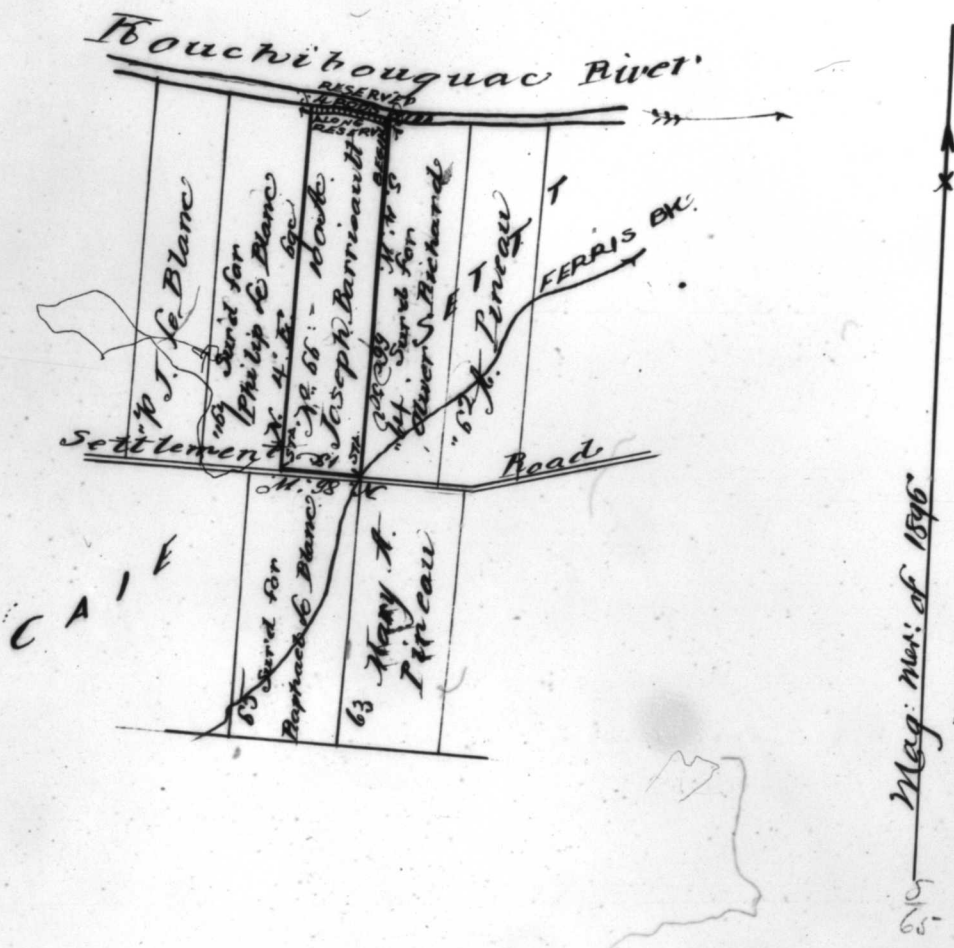 Kouchibouguac River
RESERVED
4 RODS
ALONG
RESERV
70 J. Le Blanc
"69 Surv'd for
Philip Le Blanc
N. 4° E. 69c
No 66 : - 100 Ac
Joseph Barrieault
"64 Surv'd for
Oliver S. Richard
"62 A. Pineau
E T T
FERRIS BK.
Settlement Road
65 Surv'd for
Raphael Le Blanc
63 Mary A.
Pineau
C A I E
Mag: Mer: of 1896
65